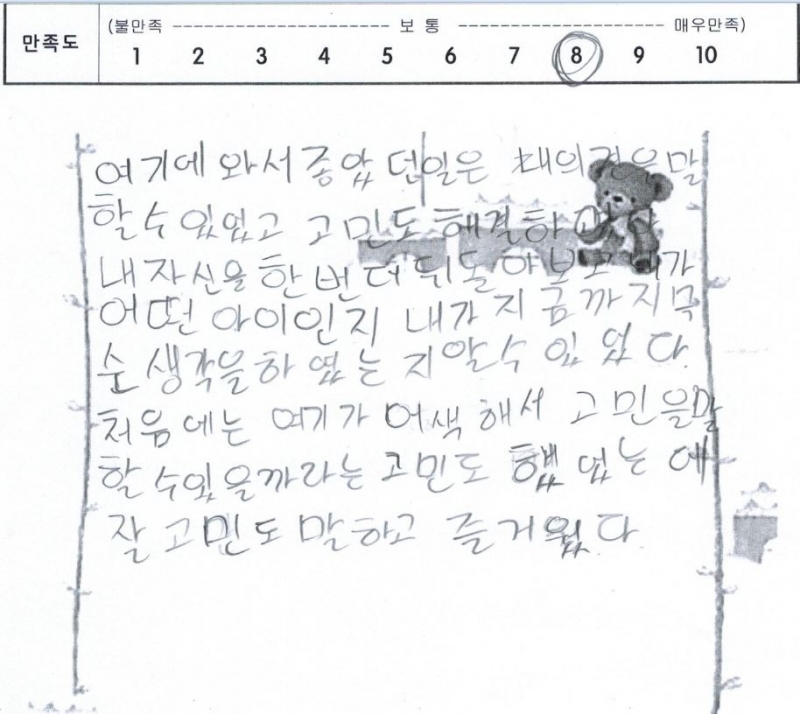 만족도
(불만족 ---------------------- 보 통 ---------------------- 매우만족)
1 2 3 4 5 6 7 8 9 10
여기에 와서 좋았 던일은 내의견을말
할수 있었고 고민도 해결하
내자신을 한번더 뒤돌아보고 내가
어떤 아이인지 내가 지금까지무
순 생각을하였는 지알수 있 었 다.
처음에는 여기가 어색해서 고민을말
할 수있을까라는 고민도 했었는데
잘 고민도 말하고 즐거웠다